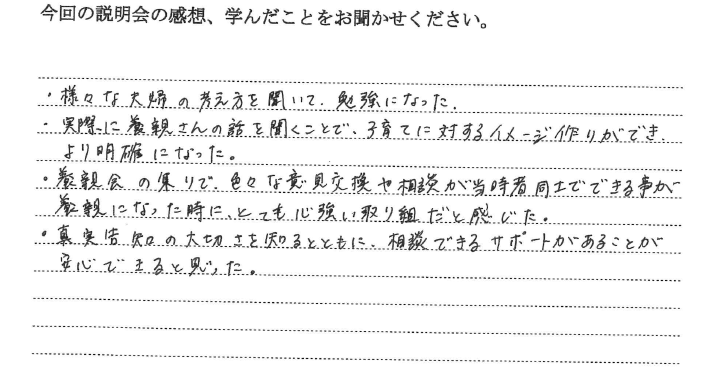 今回の説明会の感想、学んだことをお聞かせください。
・様々な夫婦の考え方を聞いて、勉強になった。
・実際に養親さんの話を聞くことで、子育てに対するイメージ作りができ、
より明確になった。
・養親会の集りで、色々な意見交換や相談が当時者同士でできる事が
養親になった時に、とても心強い取り組だと感じた。
・真実告知の大切さを知るとともに、相談できるサポートがあることが
安心できると思った。